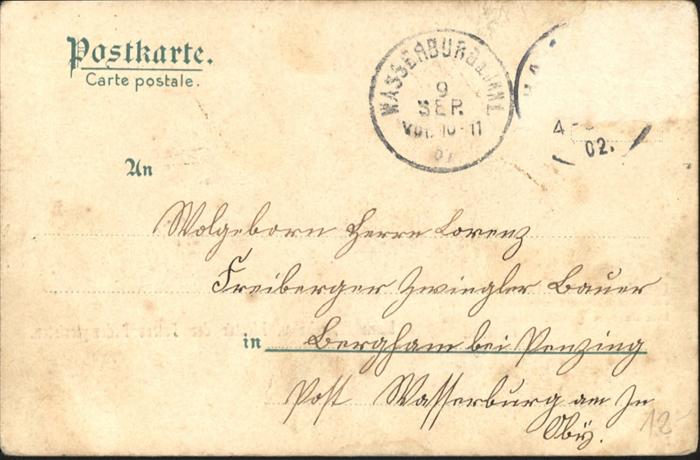 Postkarte.
Carte postale.
WASSERBURG a. INN 1
9
SEP.
VOR. 10-11
07
4
02.
An
Wolgeborn Herrn Lorenz
Freiberger Zwingler Bauer
in Bergham bei Penzing
Post Wasserburg am In
Oby.
12-